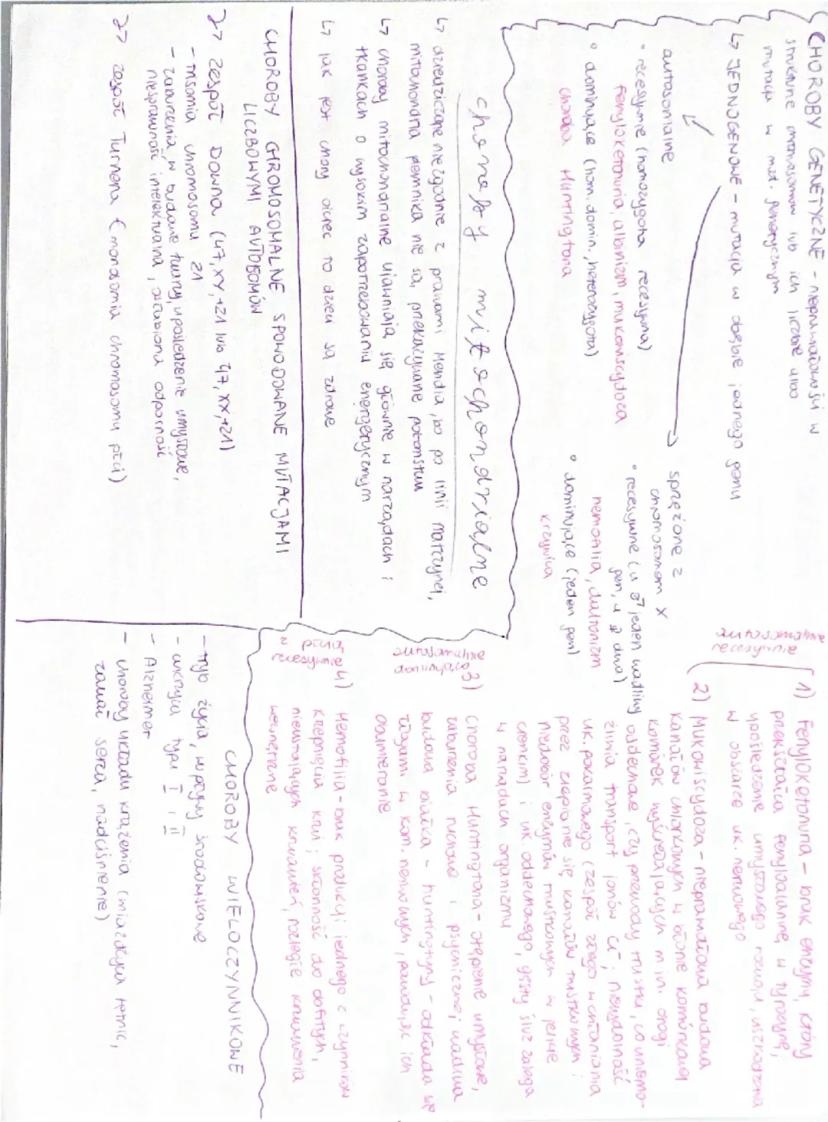 CHOROBY GENETYCZNE - nieprawidłowości w
strukturze chromosomów lub ich liczbie albo
mutacje w mat. genetycznym
↳ JEDNOGENOWE - mutacja w obrębie jednego genu
autosomalne
• recesywne (homozygota recesywna)
fenyloketonuria, albinizm, mukowiscydoza
• dominujące (hom. domin, heterozygota)
choroba Huntingtona
sprzężone z
chromosomem X
• recesywne (u ♂ jeden wadliwy
gen, u ♀ dwa)
hemofilia, daltonizm
• dominujące (jeden gen)
krzywica
choroby mitochondrialne
↳ dziedziczone niezgodnie z prawami Mendla, bo po linii matczynej,
mitochondria plemnika nie są przekazywane potomstwu
↳ choroby mitochondrialne ujawniają się głównie w narządach i
tkankach o wysokim zapotrzebowaniu energetycznym
↳ jak jest chory ojciec to dzieci są zdrowe
CHOROBY CHROMOSOMALNE SPOWODOWANE MUTACJAMI
LICZBOWYMI AUTOSOMÓW
zespół Downa (47,XY,+21 lub 47,XX,+21)
- trisomia chromosomu 21
- zaburzenia w budowie twarzy, upośledzenie umysłowe,
niesprawność intelektualna, osłabiona odporność
zespół Turnera (monosomia chromosomu płci)
autosomalnie
recesywnie
1) Fenyloketonuria - brak enzymu, który
przekształca fenyloalaninę w tyrozynę,
upośledzenie umysłowego rozwoju, uszkodzenia
w obszarze uk. nerwowego
2) Mukowiscydoza - nieprawidłowa budowa
kanałów chlorkowych w błonie komórkowej
komórek wyściełających m.in. drogi
oddechowe, czy przewody trzustki, co uniemo-
żliwia transport jonów Cl⁻; niewydolność
uk. pokarmowego (zespół złego wchłaniania
przez zlepianie się kanałów trzustkowych i
niedobór enzymów trzustkowych w jelicie
cienkim) i uk. oddechowego, gęsty śluz zalega
w narządach organizmu
autosomalnie
dominująco
3) Choroba Huntingtona - otępienie umysłowe,
zaburzenia ruchowe i psychiczne; wadliwa
budowa białka - huntingtyny - odkłada się
złogami w kom. nerwowych, powodując ich
obumieranie
z płcią
recesywnie
4) Hemofilia - brak produkcji jednego z czynników
krzepnięcia krwi; skłonność do obfitych,
nieustających krwawień, rozległe krwawienia
wewnętrzne
CHOROBY WIELOCZYNNIKOWE
- tryb życia, wpływy środowiskowe
- cukrzyca typu I i II
- Alzheimer
- choroby układu krążenia (miażdżyca tętnic,
zawał serca, nadciśnienie)